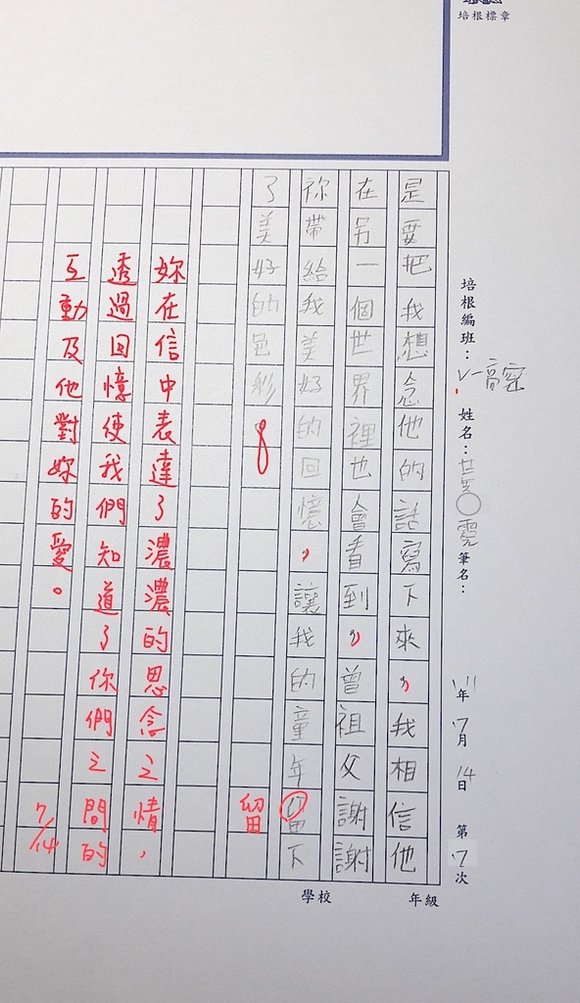 培根標章
培根編班：
姓名：
筆名：
年7月14日 第7次
年級
學校
是要把我想念他的話寫下來，我相信他
在另一個世界裡也會看到，曾祖父謝謝
祢帶給我美好的回憶，讓我的童年留下
留
了美好的色彩
妳在信中表達了濃濃的思念之情，
透過回憶使我們知道了你們之間的
互動及他對妳的愛。
7/14